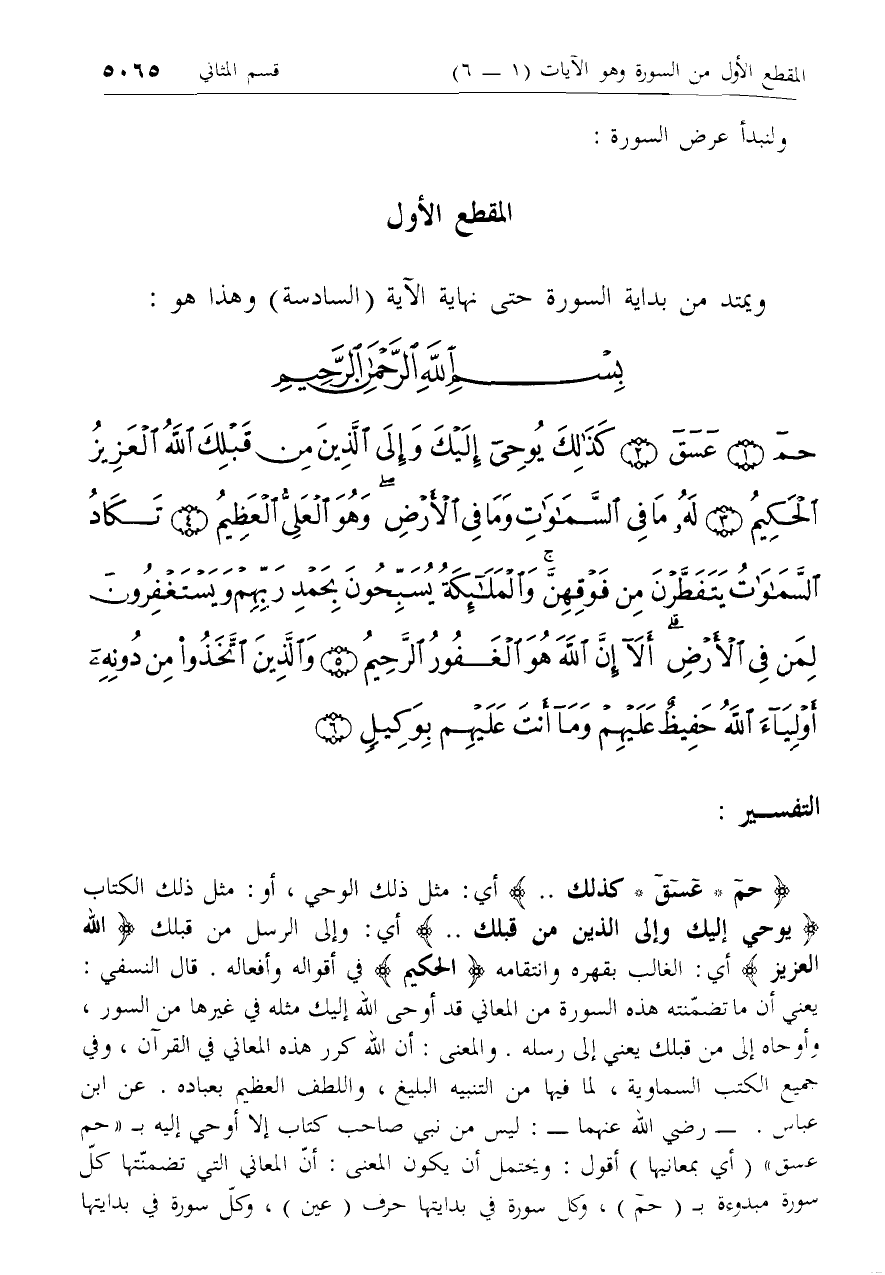 المقطع الأول من السورة وهو الآيات (١ ــ ٦) قسم المثاني ٥٠٦٥
ولنبدأ عرض السورة :
المقطع الأول
ويمتد من بداية السورة حتى نهاية الآية (السادسة) وهذا هو :
بِسْمِ ٱللَّهِ ٱلرَّحْمَٰنِ ٱلرَّحِيمِ
حمٓ ۝١ عٓسٓقٓ ۝٢ كَذَٰلِكَ يُوحِىٓ إِلَيْكَ وَإِلَى ٱلَّذِينَ مِن قَبْلِكَ ٱللَّهُ ٱلْعَزِيزُ
ٱلْحَكِيمُ ۝٣ لَهُۥ مَا فِى ٱلسَّمَٰوَٰتِ وَمَا فِى ٱلْأَرْضِ ۖ وَهُوَ ٱلْعَلِىُّ ٱلْعَظِيمُ ۝٤ تَكَادُ
ٱلسَّمَٰوَٰتُ يَتَفَطَّرْنَ مِن فَوْقِهِنَّ ۚ وَٱلْمَلَٰٓئِكَةُ يُسَبِّحُونَ بِحَمْدِ رَبِّهِمْ وَيَسْتَغْفِرُونَ
لِمَن فِى ٱلْأَرْضِ ۗ أَلَآ إِنَّ ٱللَّهَ هُوَ ٱلْغَفُورُ ٱلرَّحِيمُ ۝٥ وَٱلَّذِينَ ٱتَّخَذُوا۟ مِن دُونِهِۦٓ
أَوْلِيَآءَ ٱللَّهُ حَفِيظٌ عَلَيْهِمْ وَمَآ أَنتَ عَلَيْهِم بِوَكِيلٍ ۝٦
التفسير :
﴿ حمٓ * عٓسٓقٓ * كذلك .. ﴾ أي : مثل ذلك الوحي ، أو : مثل ذلك الكتاب
﴿ يوحي إليك وإلى الذين من قبلك .. ﴾ أي : وإلى الرسل من قبلك ﴿ الله
العزيز ﴾ أي : الغالب بقهره وانتقامه ﴿ الحكيم ﴾ في أقواله وأفعاله . قال النسفي :
يعني أن ما تضمّنته هذه السورة من المعاني قد أوحى الله إليك مثله في غيرها من السور ،
وأوحاه إلى من قبلك يعني إلى رسله . والمعنى : أن الله كرر هذه المعاني في القرآن ، وفي
جميع الكتب السماوية ، لما فيها من التنبيه البليغ ، واللطف العظيم بعباده . عن ابن
عباس . ــ رضي الله عنهما ــ : ليس من نبي صاحب كتاب إلا أوحي إليه بـ «حم
عسق» ( أي بمعانيها ) أقول : ويحتمل أن يكون المعنى : أنّ المعاني التي تضمنّتها كلّ
سورة مبدوءة بـ ( حمٓ ) ، وكل سورة في بدايتها حرف ( عين ) ، وكلّ سورة في بدايتها